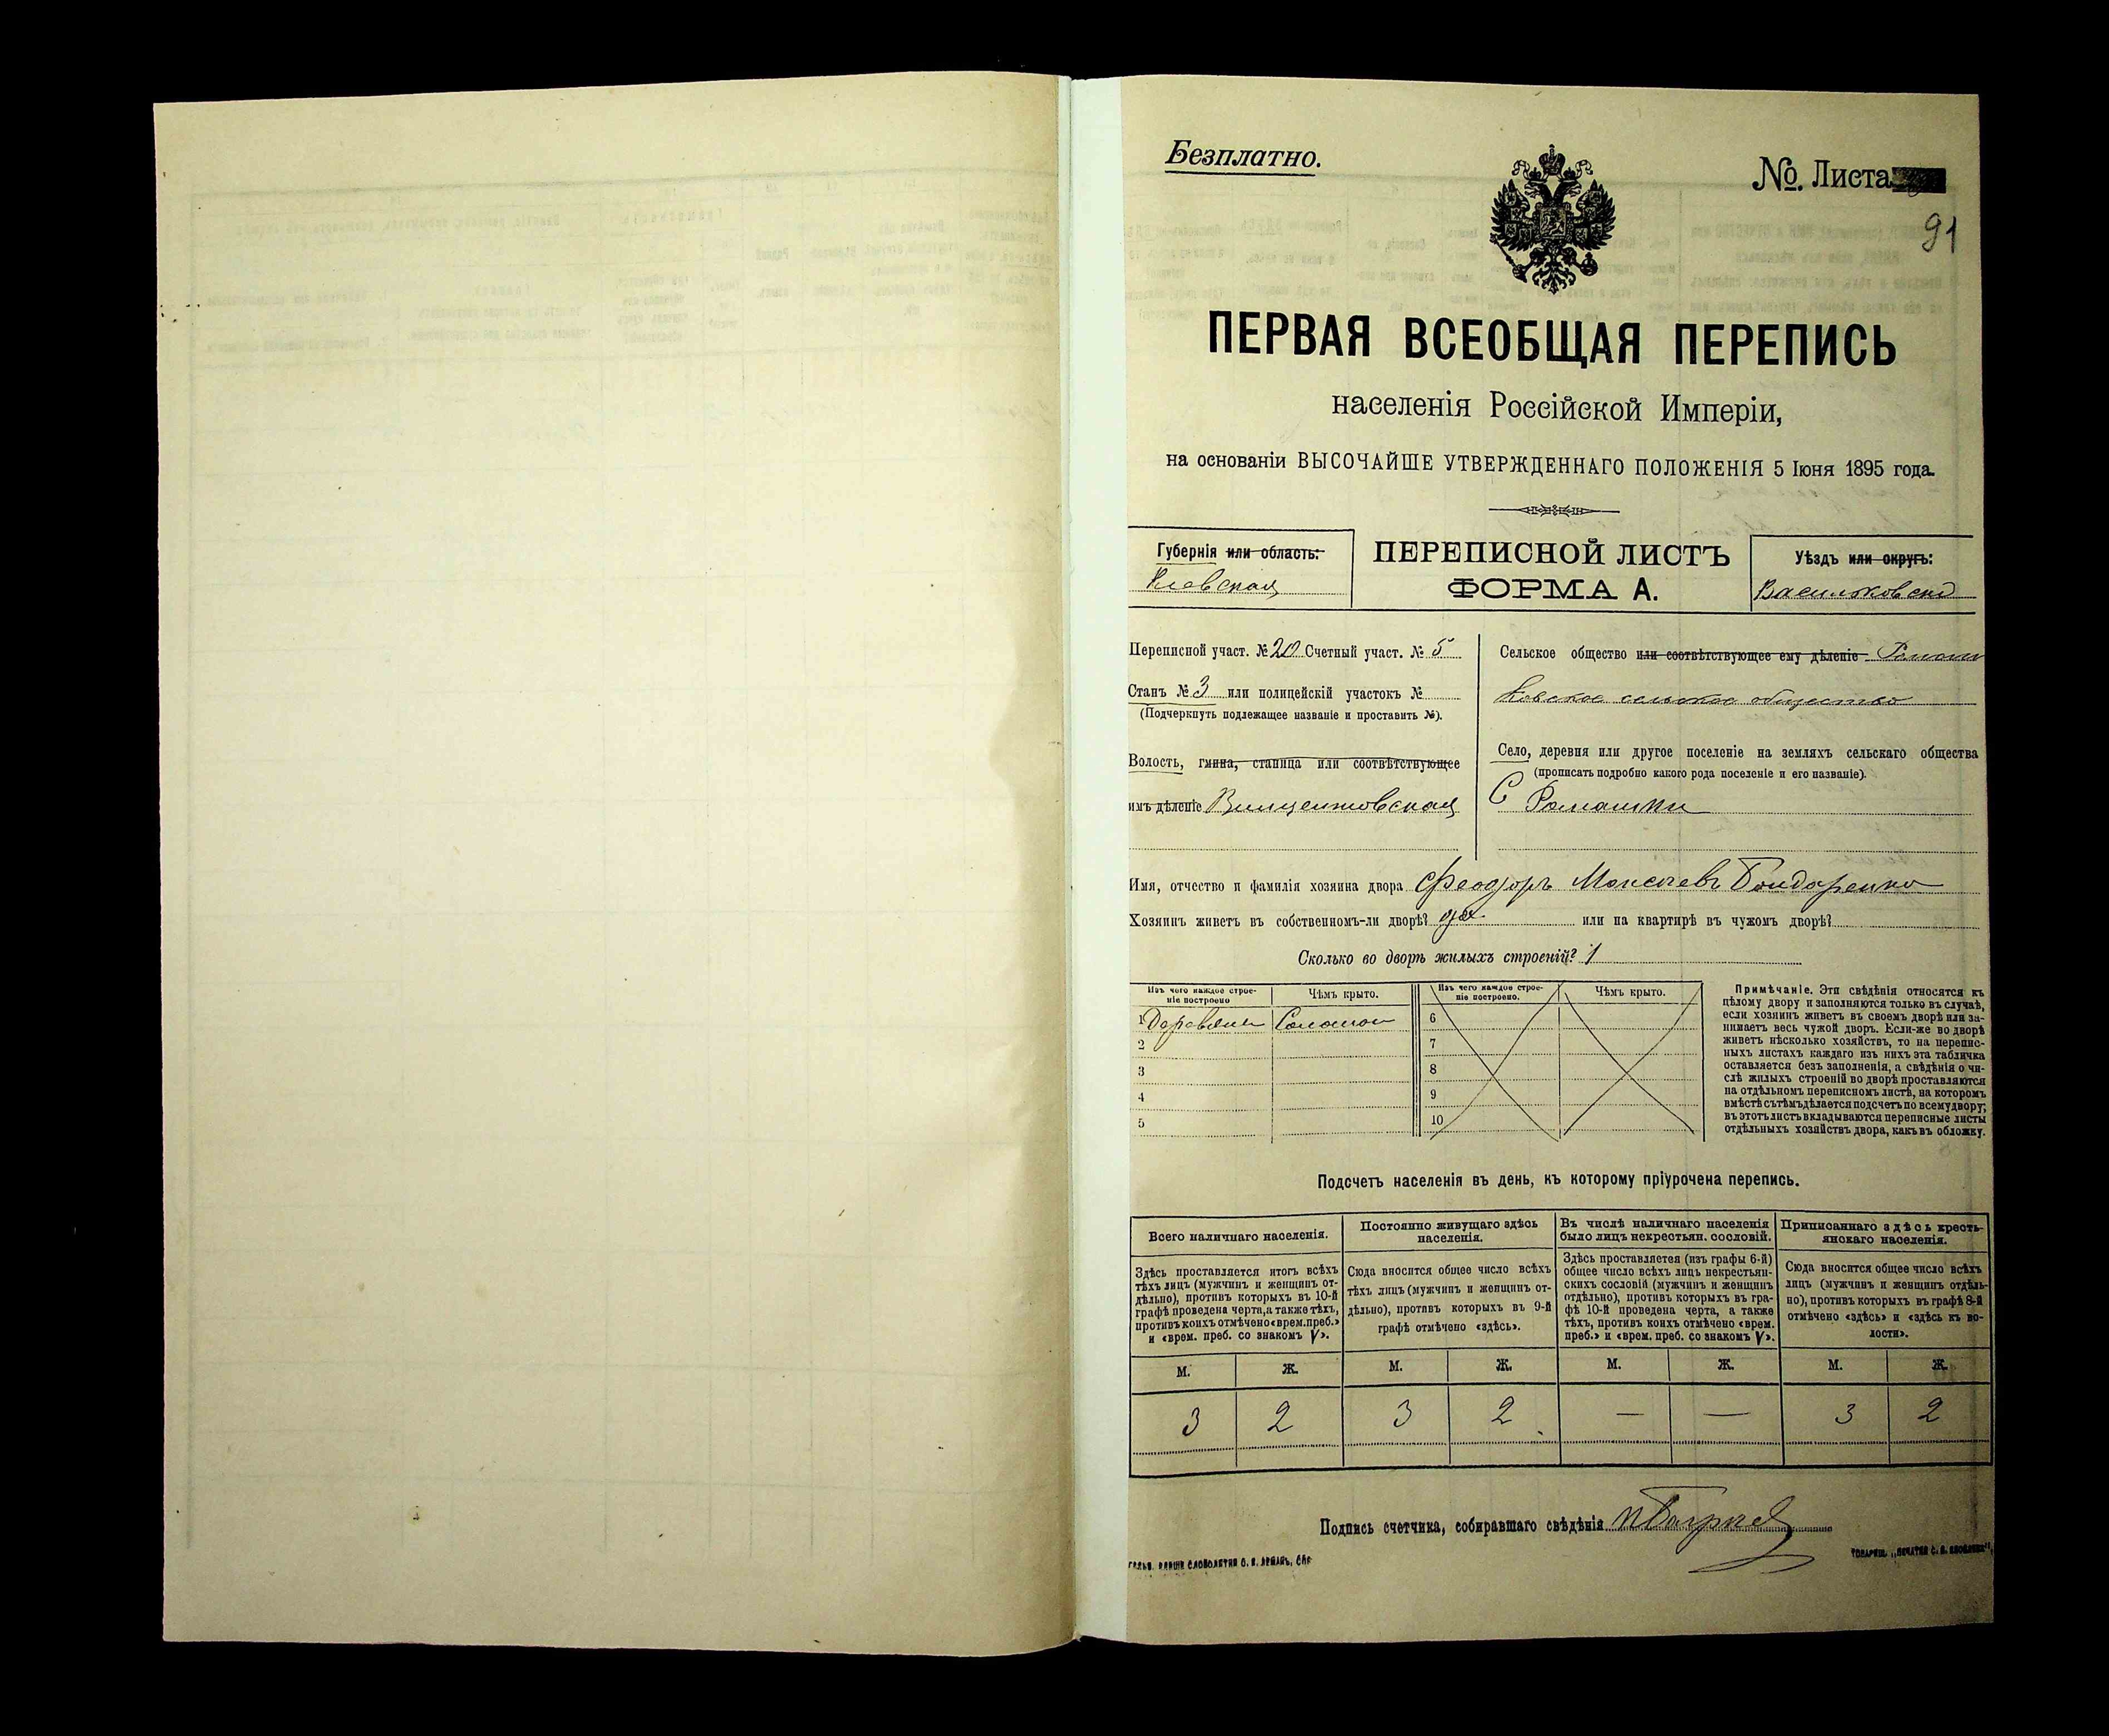 Безплатно.
№. Листа
91
ПЕРВАЯ ВСЕОБЩАЯ ПЕРЕПИСЬ
населенія Россійской Имперіи,
на основаніи ВЫСОЧАЙШЕ УТВЕРЖДЕННАГО ПОЛОЖЕНІЯ 5 Іюня 1895 года.
Губернія или область:
Кіевская
ПЕРЕПИСНОЙ ЛИСТЪ
ФОРМА А.
Уѣздъ или округъ:
Васильковскій
Переписной участ. № 20 Счетный участ. № 5
Станъ № 3 или полицейскій участокъ №
(Подчеркнуть подлежащее названіе и проставить №).
Волость, гмина, станица или соотвѣтствующее
имъ дѣленіе Винцентовская
Сельское общество или соотвѣтствующее ему дѣленіе Ромаш
ковское сельское общество
Село, деревня или другое поселеніе на земляхъ сельскаго общества
(прописать подробно какого рода поселеніе и его названіе).
С Ромашки
Имя, отчество и фамилія хозяина двора Феодоръ Моисеевъ Бондаренко
Хозяинъ живетъ въ собственномъ-ли дворѣ? да или на квартирѣ въ чужомъ дворѣ?
Сколько во дворѣ жилыхъ строеній? 1
Изъ чего каждое строе-
ніе построено
Чѣмъ крыто.
Изъ чего каждое строе-
ніе построено.
Чѣмъ крыто.
1 Деревяни Соломои 6
2 7
3 8
4 9
5 10
Примѣчаніе. Эти свѣдѣнія относятся къ
цѣлому двору и заполняются только въ случаѣ,
если хозяинъ живетъ въ своемъ дворѣ или за-
нимаетъ весь чужой дворъ. Если-же во дворѣ
живетъ нѣсколько хозяйствъ, то на перепис-
ныхъ листахъ каждаго изъ нихъ эта табличка
оставляется безъ заполненія, а свѣдѣнія о чи-
слѣ жилыхъ строеній во дворѣ проставляются
на отдѣльномъ переписномъ листѣ, на которомъ
вмѣстѣ съ тѣмъ дѣлается подсчетъ по всему двору;
въ этотъ листъ вкладываются переписные листы
отдѣльныхъ хозяйствъ двора, какъ въ обложку.
Подсчетъ населенія въ день, къ которому пріурочена перепись.
Всего наличнаго населенія.
Здѣсь проставляется итогъ всѣхъ
тѣхъ лицъ (мужчинъ и женщинъ от-
дѣльно), противъ которыхъ въ 10-й
графѣ проведена черта, а также тѣхъ,
противъ коихъ отмѣчено «врем. преб.»
и «врем. преб. со знакомъ V».
Постоянно живущаго здѣсь
населенія.
Сюда вносится общее число всѣхъ
тѣхъ лицъ (мужчинъ и женщинъ от-
дѣльно), противъ которыхъ въ 9-й
графѣ отмѣчено «здѣсь».
Въ числѣ наличнаго населенія
было лицъ некрестьян. сословій.
Здѣсь проставляется (изъ графы 6-й)
общее число всѣхъ лицъ некрестьян-
скихъ сословій (мужчинъ и женщинъ
отдѣльно), противъ которыхъ въ гра-
фѣ 10-й проведена черта, а также
тѣхъ, противъ коихъ отмѣчено «врем.
преб.» и «врем. преб. со знакомъ V».
Приписаннаго здѣсь кресть-
янскаго населенія.
Сюда вносится общее число всѣхъ
лицъ (мужчинъ и женщинъ отдѣль-
но), противъ которыхъ въ графѣ 8-й
отмѣчено «здѣсь» и «здѣсь къ во-
лости».
М. Ж. М. Ж. М. Ж. М. Ж.
3 2 3 2 — — 3 2
Подпись счетчика, собиравшаго свѣдѣнія